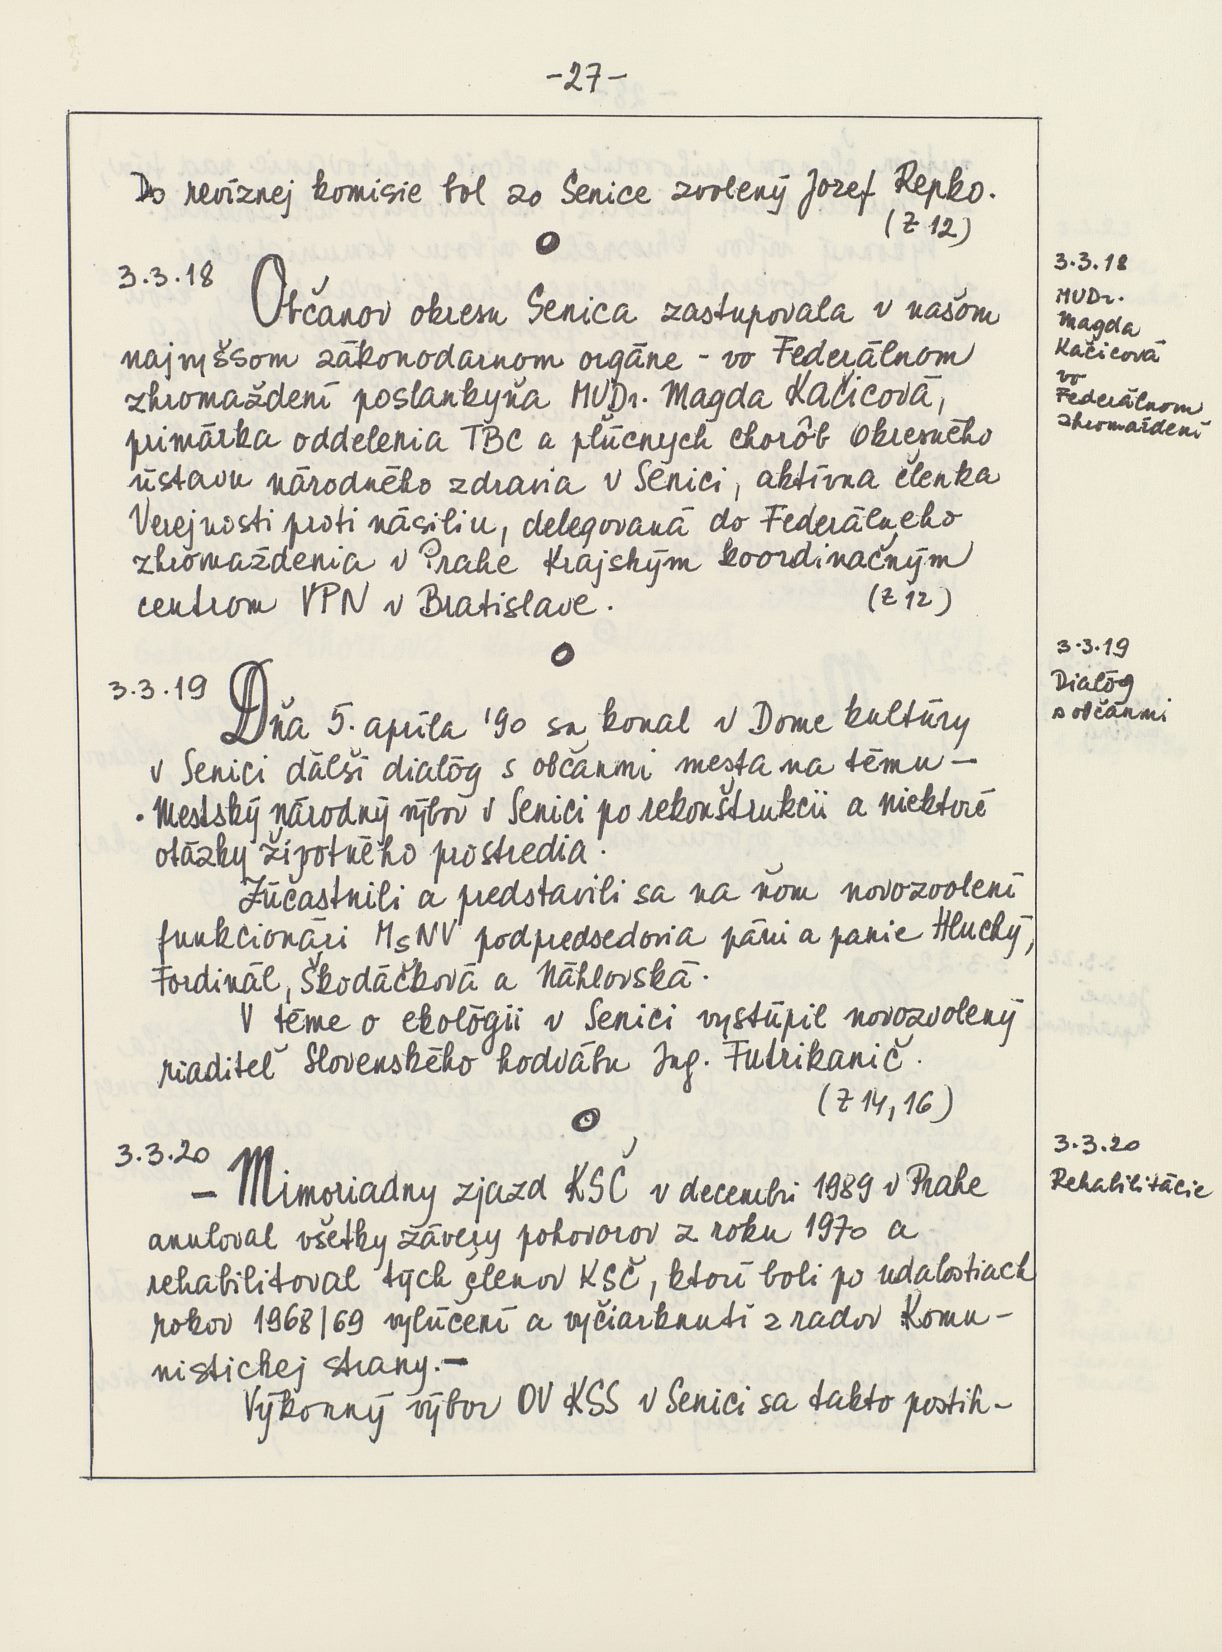 -27-
Do revíznej komisie bol zo Senice zvolený Jozef Repko.
(Z 12)
3.3.18
Občanov okresu Senica zastupovala v našom
najvyššom zákonodarnom orgáne - vo Federálnom
zhromaždení poslankyňa MUDr. Magda Kačicová,
primárka oddelenia TBC a pľúcnych chorôb Okresného
ústavu národného zdravia v Senici, aktívna členka
Verejnosti proti násiliu, delegovaná do Federálneho
zhromaždenia v Prahe Krajským koordinačným
centrom VPN v Bratislave.
(Z 12)
3.3.18
MUDr.
Magda
Kačicová
vo
Federálnom
zhromaždení
3.3.19
Dňa 5. apríla '90 sa konal v Dome kultúry
v Senici ďalší dialóg s občanmi mesta na tému –
• Mestský národný výbor v Senici po rekonštrukcii a niektoré
otázky životného prostredia.
Zúčastnili a predstavili sa na ňom novozvolení
funkcionári MsNV podpredsedovia páni a panie Hluchý,
Fordinál, Škodáčková a Náhlovská.
V téme o ekológii v Senici vystúpil novozvolený
riaditeľ Slovenského hodvábu Ing. Futrikanič.
(Z 14, 16)
3.3.19
Dialóg
s občanmi
3.3.20
– Mimoriadny zjazd KSČ v decembri 1989 v Prahe
anuloval všetky závery pohovorov z roku 1970 a
rehabilitoval tých členov KSČ, ktorí boli po udalostiach
rokov 1968/69 vylúčení a vyčiarknutí z radov Komu-
nistickej strany.–
Výkonný výbor OV KSS v Senici sa takto postih-
3.3.20
Rehabilitácie